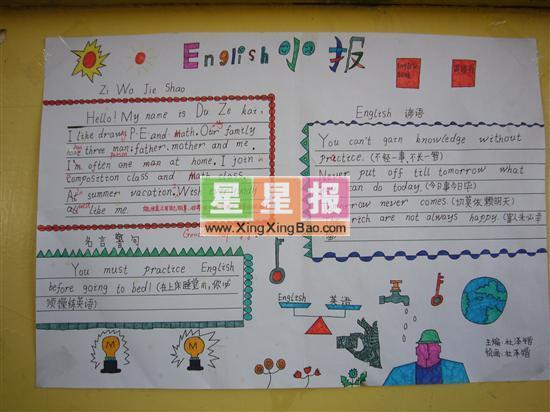 English 小报
Zi Wo Jie Shao
Hello! My name is Du Ze kai,
I like draws P.E and math. Our family
has three man: father. mother and me.
I'm often one man at home. I join
composition class and math class
At summer vacation. With
all like me.
名言警句
You must practice English
before going to bed! (在上床睡觉前,你必
须操练英语)
English 谚语
You can't gain knowledge without
practice. (不经一事,不长一智)
Never put off till tomorrow what
can do today. (今日事今日毕)
Tomorrow never comes. (切莫依赖明天)
rich are not always happy. (富人未必幸
星星报
www.XingXingBao.com
English 英语
M
M
主编:杜泽锴
绘画:杜泽锴